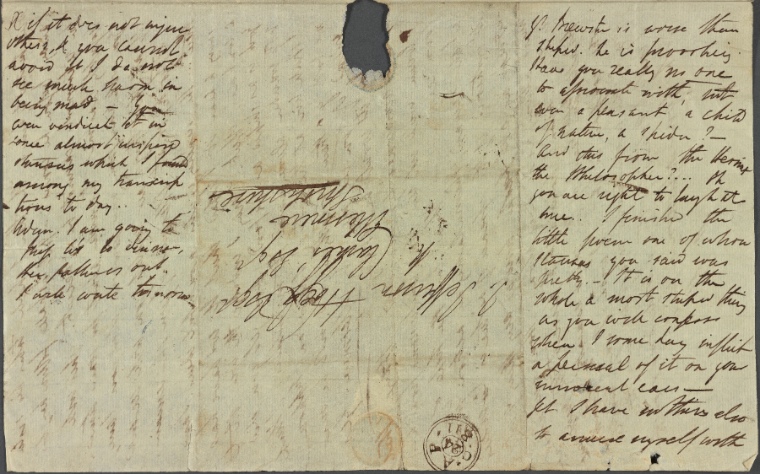 X if it does not injure
others, & you cannot
avoid it I do not
see much harm in
being mad, — You
even vindicate it in
some almost inspired
stanzas which I found
among my transcrip
tions to day..
Adieu. I am going to
Miss to dinner,
her father is out.
I will write tomorrow
T. Jefferson Hogg Esqr
Esqr
Yr is worse than
stupid. he is provoking
Have you really no one
to associate with, not
even a peasant, a child
of nature, a spider? —
And this from the Hermit
the Philosopher?... Oh
you are right to laugh at
me. I finished the
little poem one of whose
stanzas you said was
pretty. — It is on the
whole a most stupid thing
as you will confess
when I some day inflict
a perusal of it on your
innocent ears —
yet I have nothing else
to amuse myself with